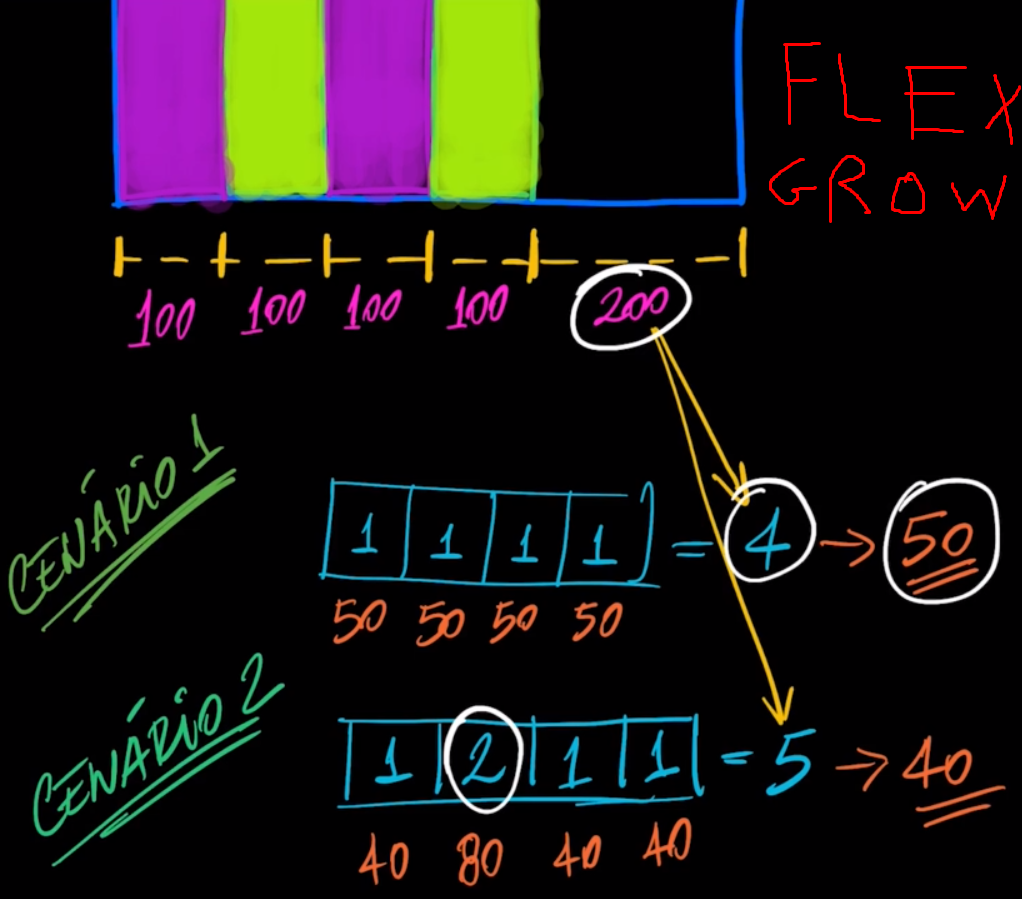 FLEX
GROW
100 100 100 100 200
CENÁRIO 1
1 1 1 1 = 4 → 50
50 50 50 50
CENÁRIO 2
1 2 1 1 = 5 → 40
40 80 40 40